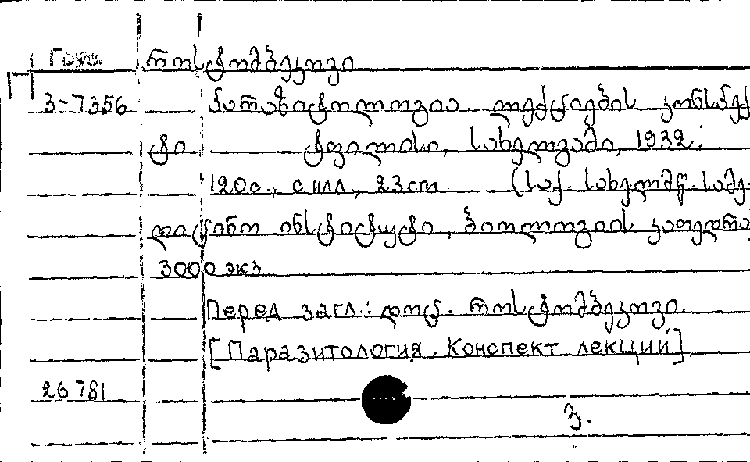 Груз. როსტომბეკოვი
3-7356 პარაზიტოლოგია ლექციების კონსპექ
ტი ტფილისი, სახელგამი, 1932.
120 с., с илл., 23 cm (საქ. სახელმწ. სამე-
დიცინო ინსტიტუტი, ბიოლოგიის კათედრა
3000 экз
Перед загл.: დოც. როსტომბეკოვი
[Паразитология. Конспект лекций]
26781
З.